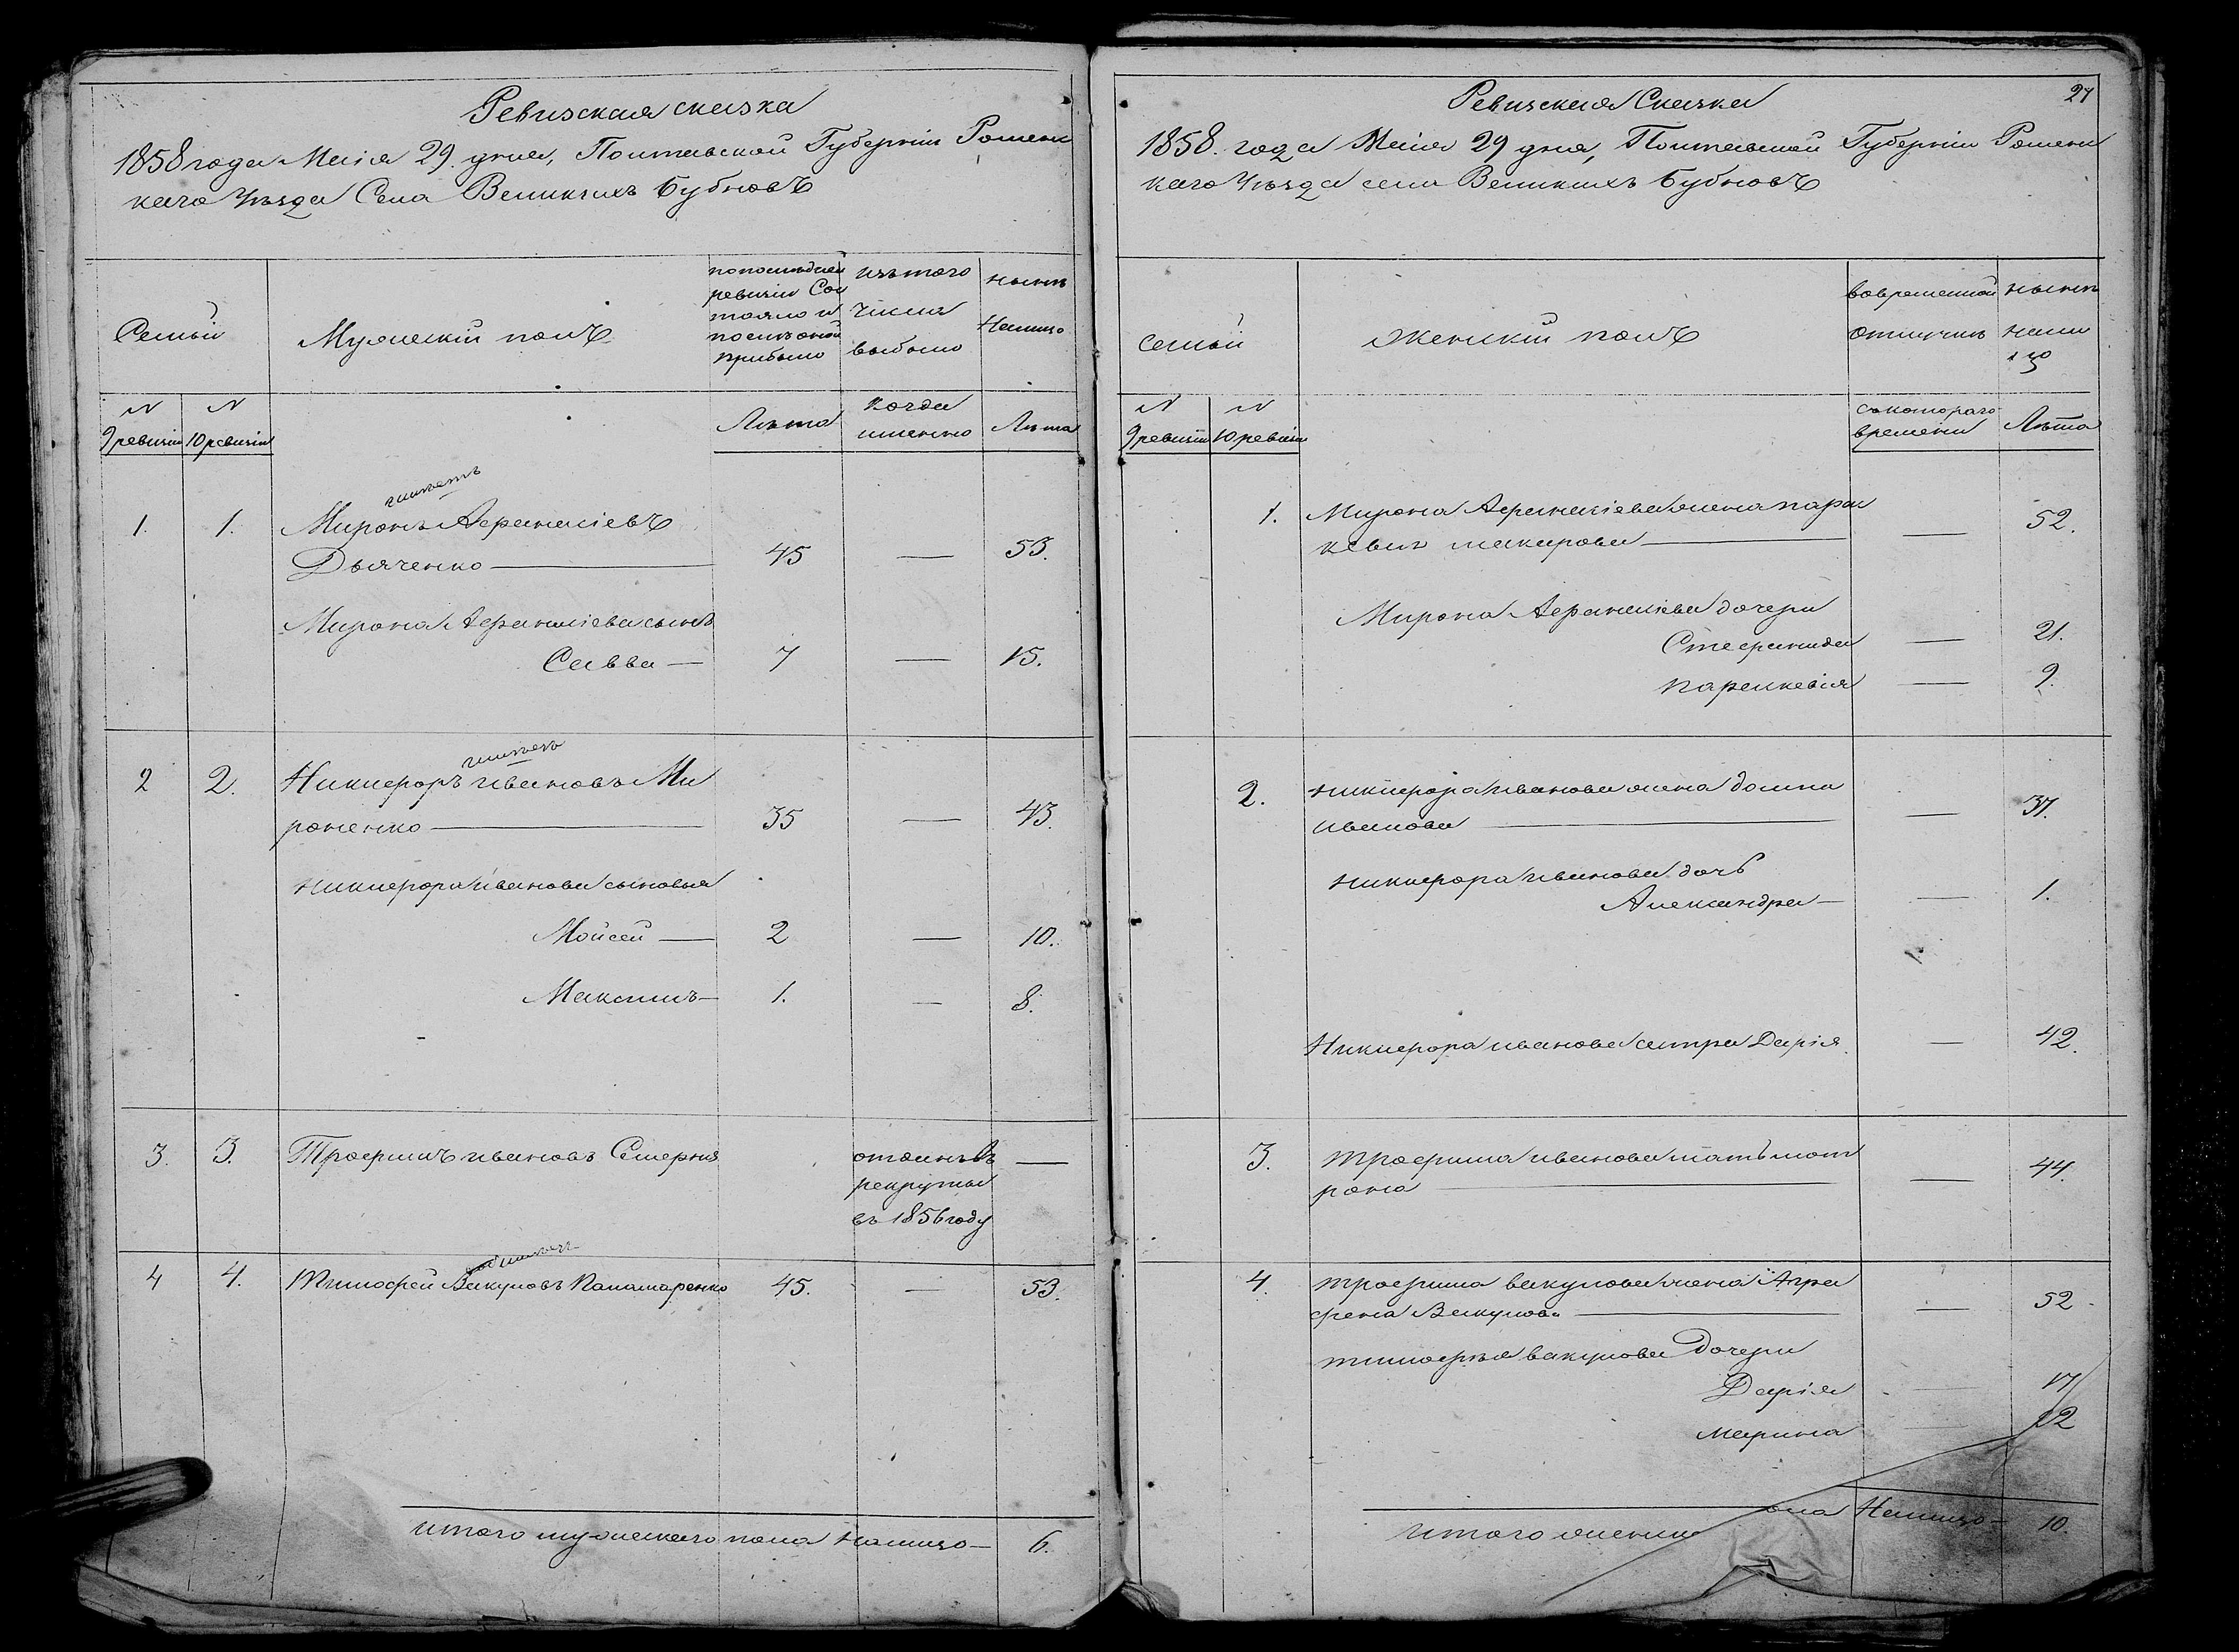 Ревизская сказка
1858 года Маія 29. дня, Полтавской Губерніи Ромен
каго Уѣзда Села Великихъ Бубновъ
Семьи
Мужескій полъ
по последней
ревизіи Сос
тояло и
послѣ оной
прибыло
изъ того
числа
выбыло
нынѣ
Налицо
N
9 ревизіи
N
10 ревизіи
Лѣта
когда
именно
Лѣта
1. 1. Миронъ Афанасіевъ
Дьяченко — 45 — 53.
Мирона Афанасіева сынъ
Савва — 7 — 15.
2 2. Никифоръ Ивановъ Ми
роненко — 35 — 43.
Никифора Иванова сыновья
Мойсей — 2 — 10.
Максимъ — 1. — 8.
3. 3. Трофимъ Ивановъ Сперня отданъ въ —
рекруты
въ 1856 году
4 4. Тимофей Вакуловъ Паламаренко 45. — 53.
итого мужескаго пола налицо — 6.
27
Ревизская Сказка
1858. года Маія 29 дня, Полтавской Губерніи Ромен
каго Уѣзда села Великихъ Бубновъ
Семьи
Женскій полъ
во временной
отлучкѣ
нынѣ
нали
цо
N
9 ревизіи
N
10 ревизіи
съ котораго
времени
Лѣта
1. Мирона Афанасіева жена Парас
кевія Макарова — — 52.
Мирона Афанасіева дочери
Стефанида — 21.
Параскевія — 9.
2. Никифора Иванова жена Домна
Иванова — — 37.
Никифора Иванова дочь
Александра — — 1.
Никифора Иванова сестра Дарія — 42.
3. Трофима Иванова мать Мот
рона — — 44.
4. Трофима Вакулова жена Агра
фена Вакулова — — 52.
Тимофея Вакулова Дочери
Дарія — 17
Марина — 12
итого женск ола Налицо — 10.